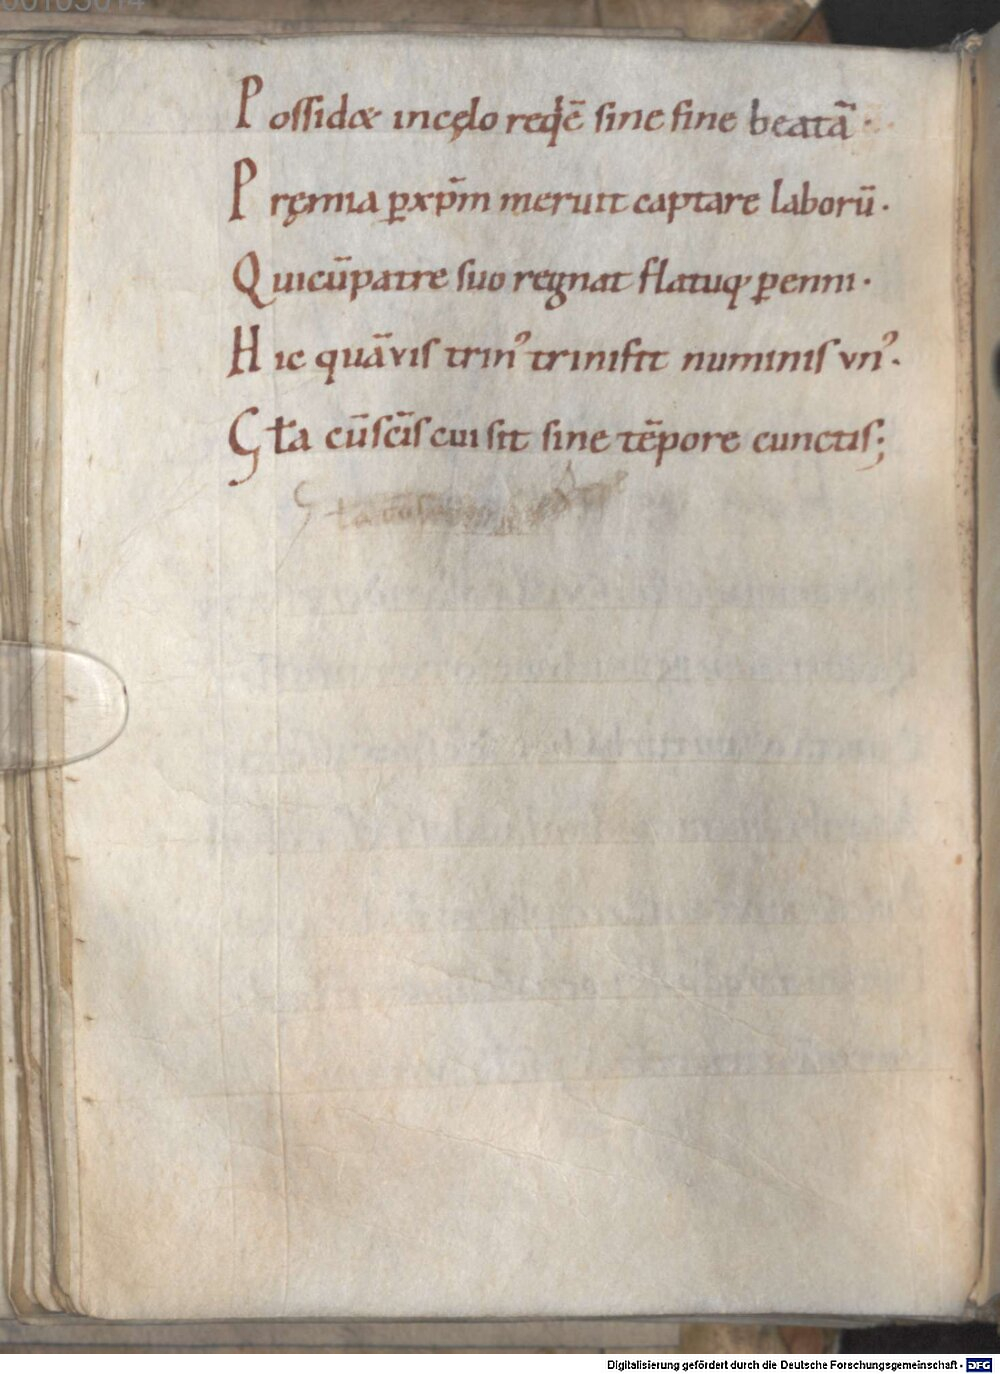 Possidæ incęlo reqē sine fine beatā·
Pręmia ꝑxp̄m meruit captare laborū·
Quicūpatre suo regnat flatuq; ꝑenni·
Hic quāvis trin᾽ trinifit numinis vn᾽·
Gl̄a cūsc̄is cui sit sine tēpore cunctis;
Digitalisierung gefördert durch die Deutsche Forschungsgemeinschaft - DFG